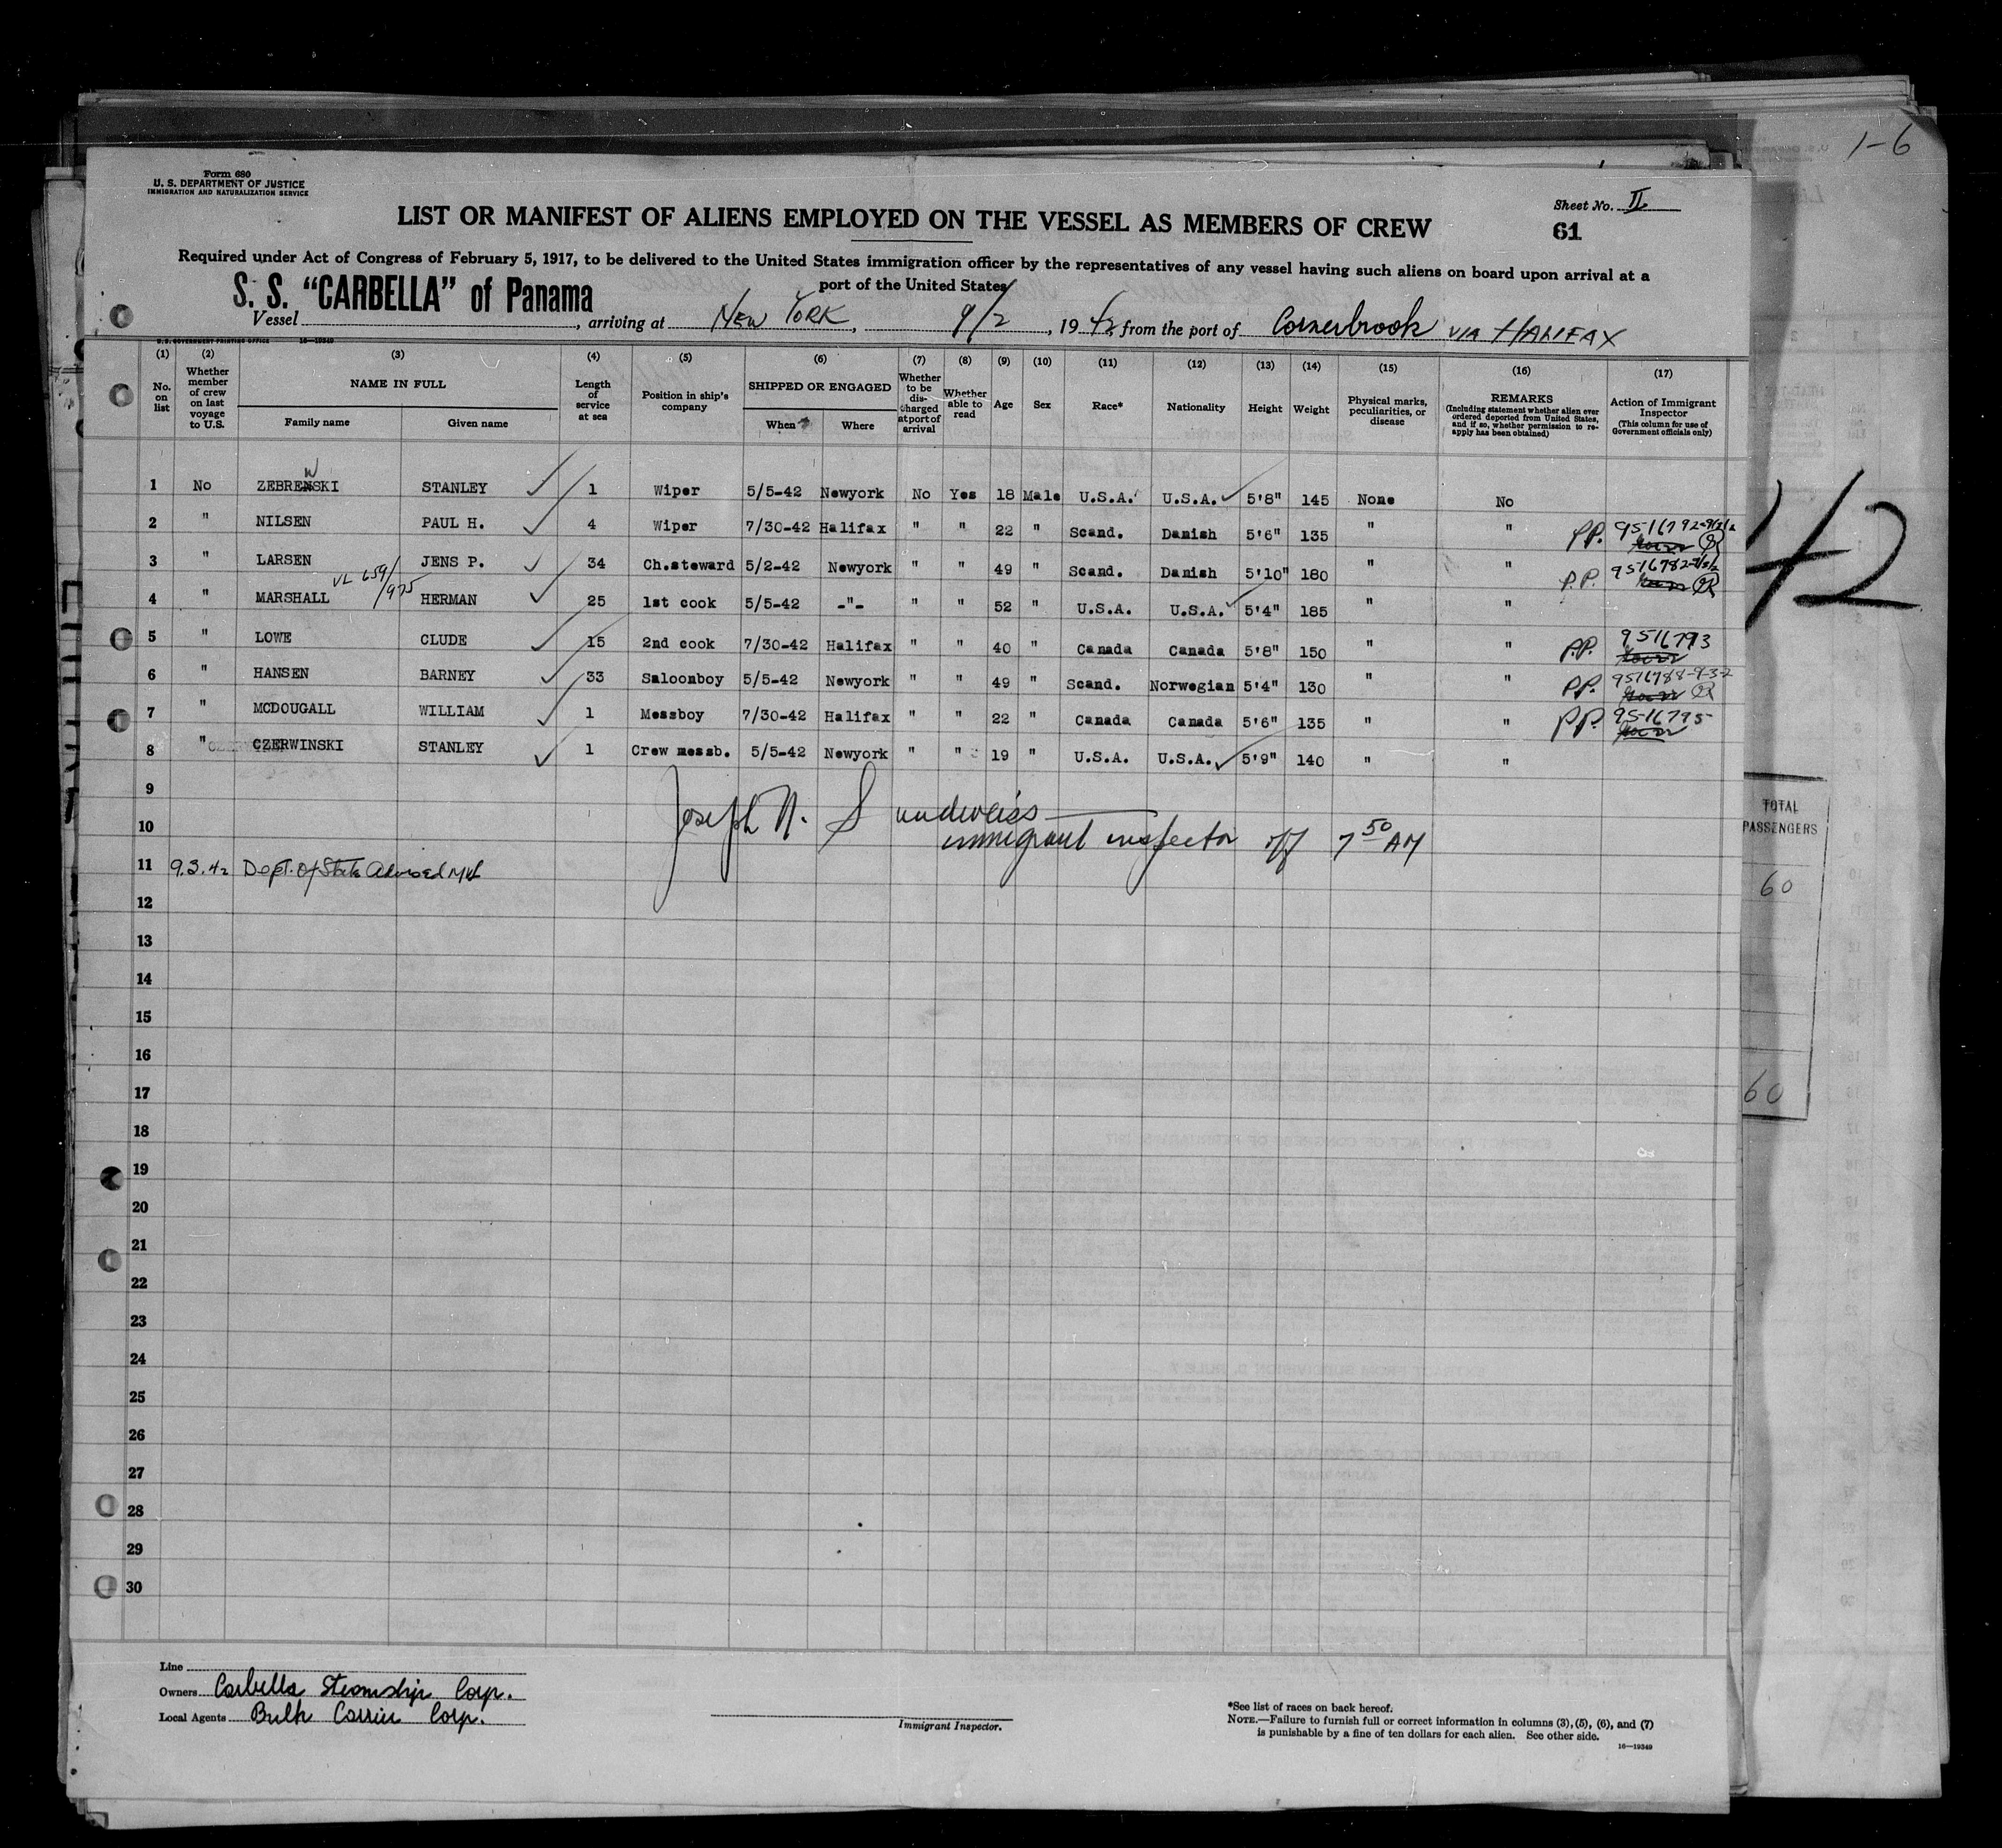 1-6
Form 680
U. S. DEPARTMENT OF JUSTICE
IMMIGRATION AND NATURALIZATION SERVICE
Sheet No. II
LIST OR MANIFEST OF ALIENS EMPLOYED ON THE VESSEL AS MEMBERS OF CREW
61
Required under Act of Congress of February 5, 1917, to be delivered to the United States immigration officer by the representatives of any vessel having such aliens on board upon arrival at a
port of the United States
S. S. "CARBELLA" of Panama
Vessel, arriving at NEW YORK, 9/2, 1942, from the port of Cornerbrook VIA HALIFAX
U.S. GOVERNMENT PRINTING OFFICE 16—19349
(1) (2) (3) (4) (5) (6) (7) (8) (9) (10) (11) (12) (13) (14) (15) (16) (17)
No. on list
Whether member of crew on last voyage to U.S.
NAME IN FULL
Family name Given name
Length of service at sea
Position in ship's company
SHIPPED OR ENGAGED
When Where
Whether to be discharged at port of arrival
Whether able to read
Age
Sex
Race*
Nationality
Height
Weight
Physical marks, peculiarities, or disease
REMARKS
(Including statement whether alien ever ordered deported from United States, and if so, whether permission to re-apply has been obtained)
Action of Immigrant Inspector
(This column for use of Government officials only)
W
1 No ZEBRENSKI STANLEY 1 Wiper 5/5-42 Newyork No Yes 18 Male U.S.A. U.S.A. 5'8" 145 None No
2 " NILSEN PAUL H. 4 Wiper 7/30-42 Halifax " " 22 " Scand. Danish 5'6" 135 " " P.P. 9516792
3 " LARSEN JENS P. 34 Ch.steward 5/2-42 Newyork " " 49 " Scand. Danish 5'10" 180 " " P.P. 9516782
VL 659/975
4 " MARSHALL HERMAN 25 1st cook 5/5-42 -"- " " 52 " U.S.A. U.S.A. 5'4" 185 " "
5 " LOWE CLUDE 15 2nd cook 7/30-42 Halifax " " 40 " Canada Canada 5'8" 150 " " P.P. 9516793
6 " HANSEN BARNEY 33 Saloonboy 5/5-42 Newyork " " 49 " Scand. Norwegian 5'4" 130 " " P.P. 9516788-9-3-2
7 " MCDOUGALL WILLIAM 1 Messboy 7/30-42 Halifax " " 22 " Canada Canada 5'6" 135 " " P.P. 9516795
8 " CZERWINSKI STANLEY 1 Crew messb. 5/5-42 Newyork " " 19 " U.S.A. U.S.A. 5'9" 140 " "
9
Joseph N.
10
immigrant inspector off 7 50 AM
11 9.3.42 Dept. of State Advised
12
13
14
15
16
17
18
19
20
21
22
23
24
25
26
27
28
29
30
42
TOTAL
PASSENGERS
60
60
Line
Owners Carbella Steamship Corp.
Local Agents Bulk Carrier Corp.
Immigrant Inspector.
*See list of races on back hereof.
NOTE.—Failure to furnish full or correct information in columns (3), (5), (6), and (7)
is punishable by a fine of ten dollars for each alien. See other side.
16—19349